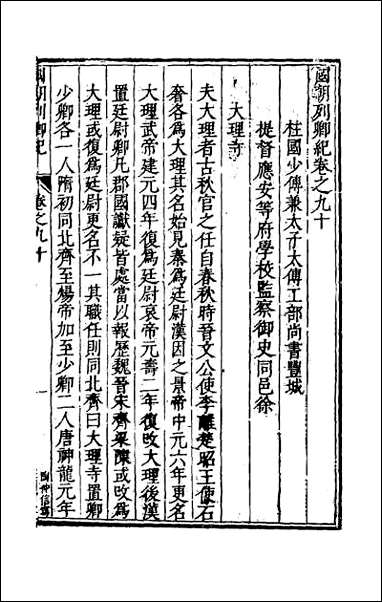 國朝列卿紀卷之九十
柱國少傅兼太子太傅工部尚書豐城
提督應安等府學校監察御史同邑徐
大理寺
夫大理者古秋官之任自春秋時晉文公使李離楚昭王使石
奢各為大理其名始見秦為廷尉漢因之景帝中元六年更名
大理武帝建元四年復為廷尉哀帝元壽二年復改大理後漢
置廷尉卿凡郡國讞疑皆處當以報歷魏晉宋齊梁陳或改為
大理或復為廷尉更名不一其職任則同北齊曰大理寺置卿
少卿各一人隋初同北齊至楊帝加至少卿二人唐神龍元年
國朝列卿紀
卷之九十
一